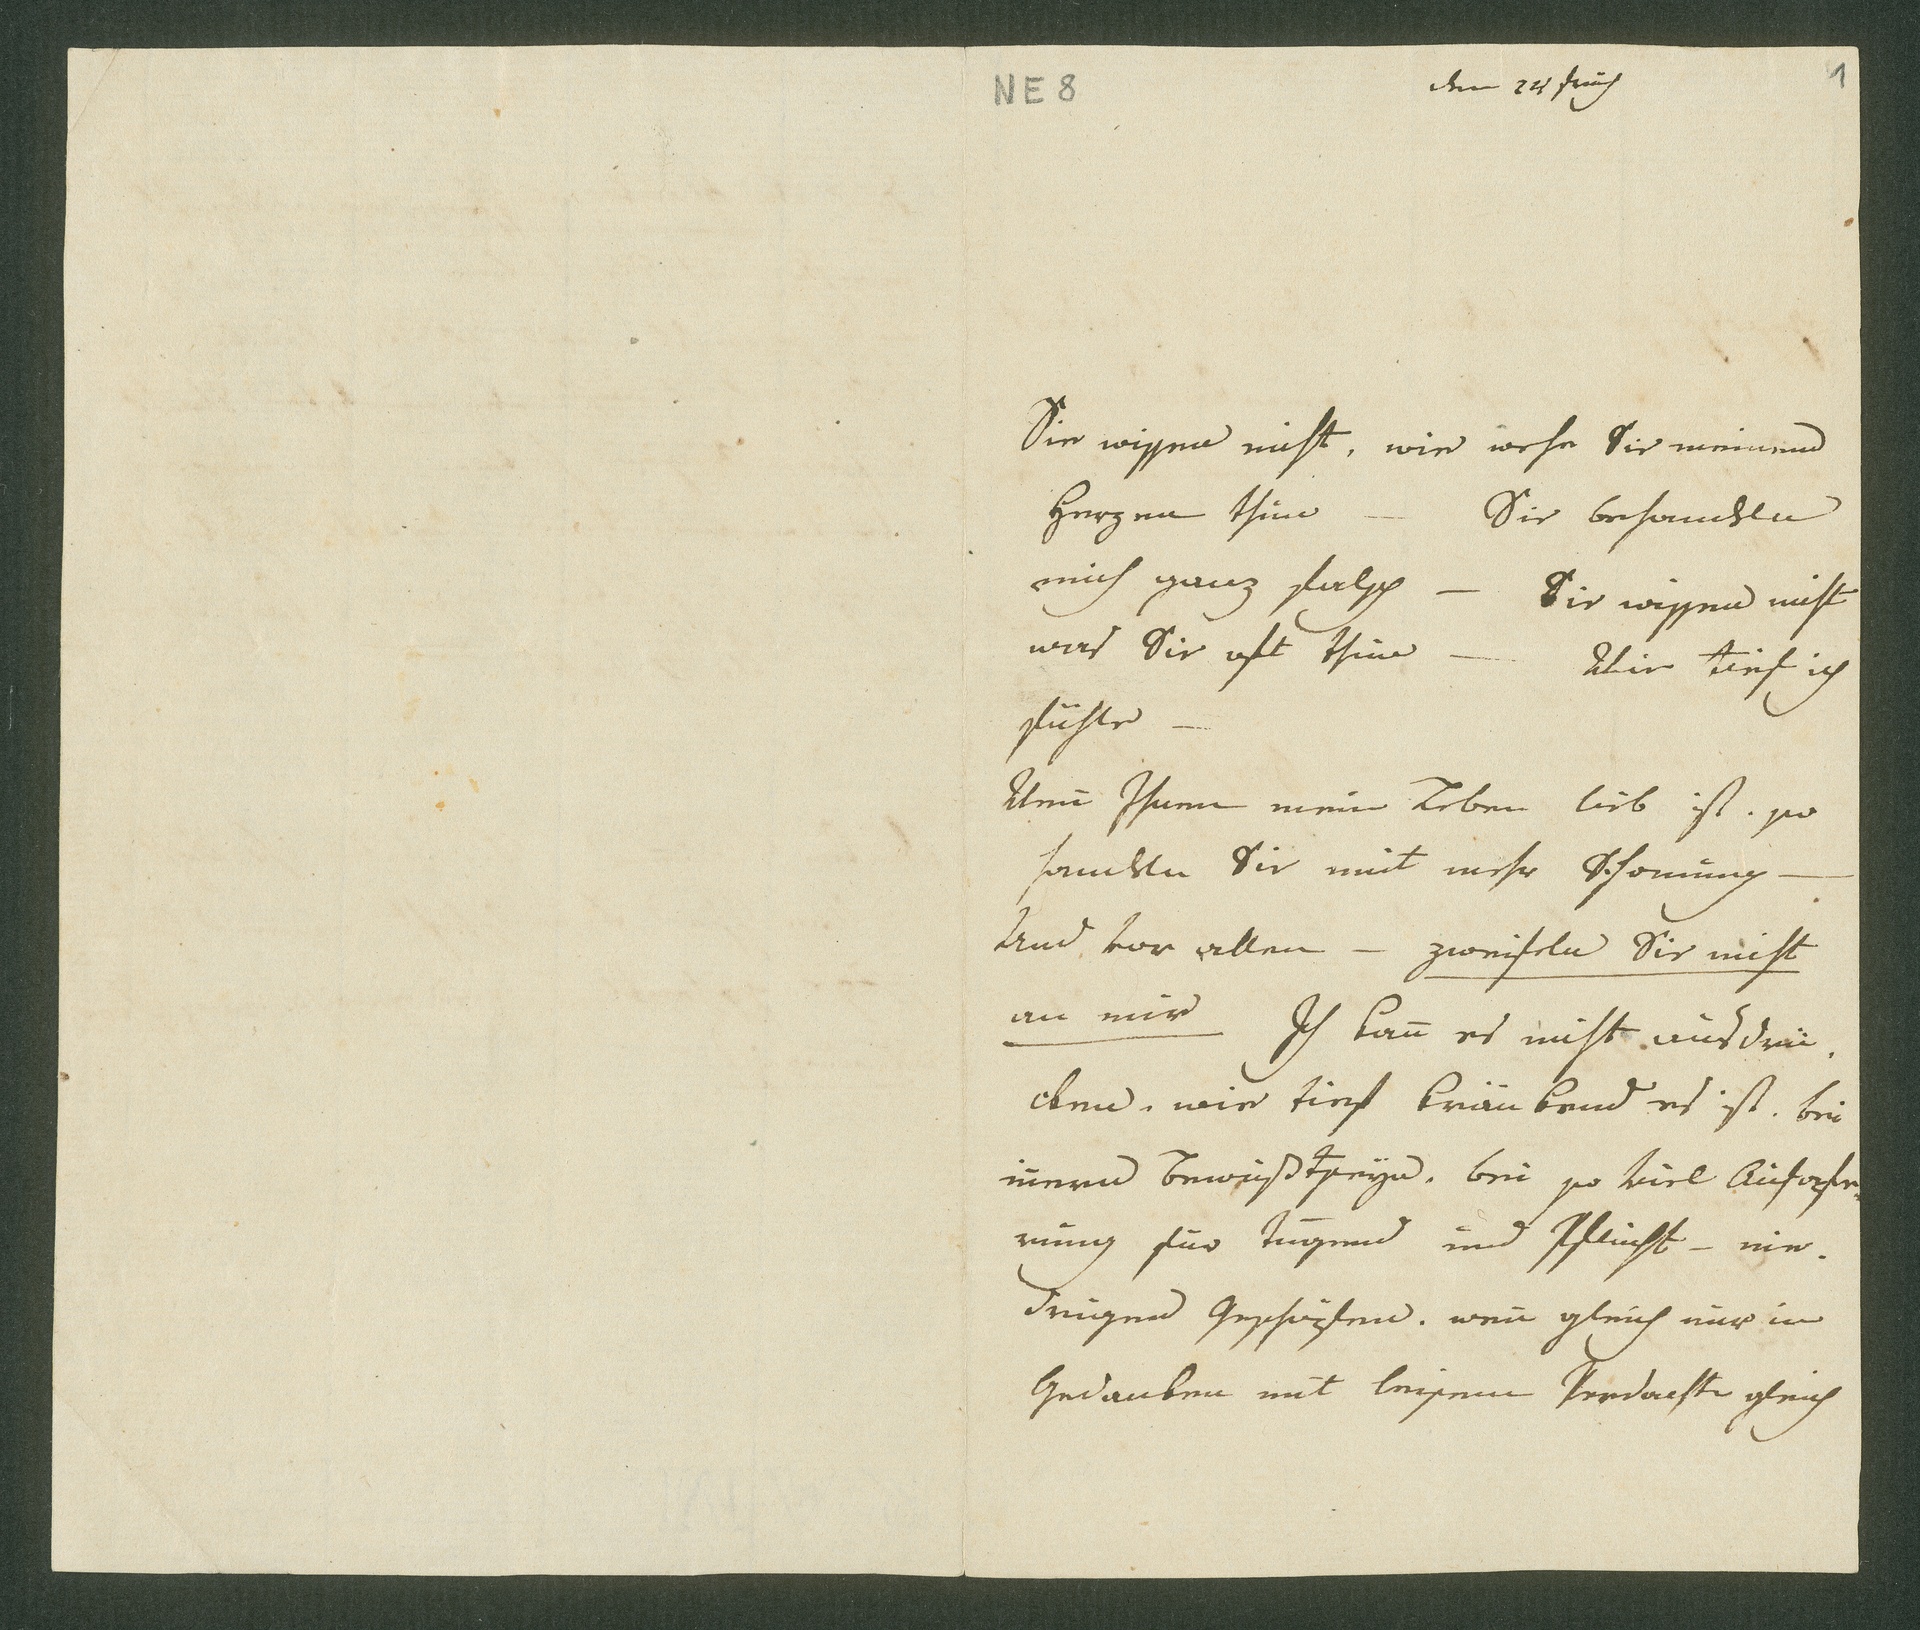 NE 8
den 24 früh
1
Sie wissen nicht, wie wehe Sie meinem
Herzen thun — Sie behandeln
mich ganz falsch — Sie wissen nicht
was Sie oft thun — Wie tief ich
fühle —
Wen̄ Ihnen mein Leben lieb ist, so
handeln Sie mit mehr Schonung —
Und vor allen — zweifeln Sie nicht
an mir Ich kan̄ es nicht ausdrü-
cken, wie tief kränkend es ist, bei
in̄ern Bewußtseyn, bei so viel Aufopfe-
rung für Tugend und Pflicht — nie-
drigen Geschöpfen, wen̄ gleich nur in
Gedanken mit leisem Verdachte gleich